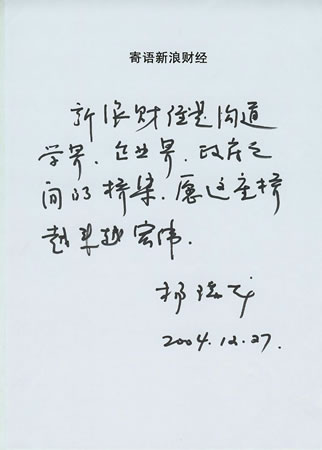 寄语新浪财经
新浪财经是沟通
学界、企业界、政府之
间的桥梁，愿这座桥
越来越宏伟.
杨瑞龙
2004.12.27.